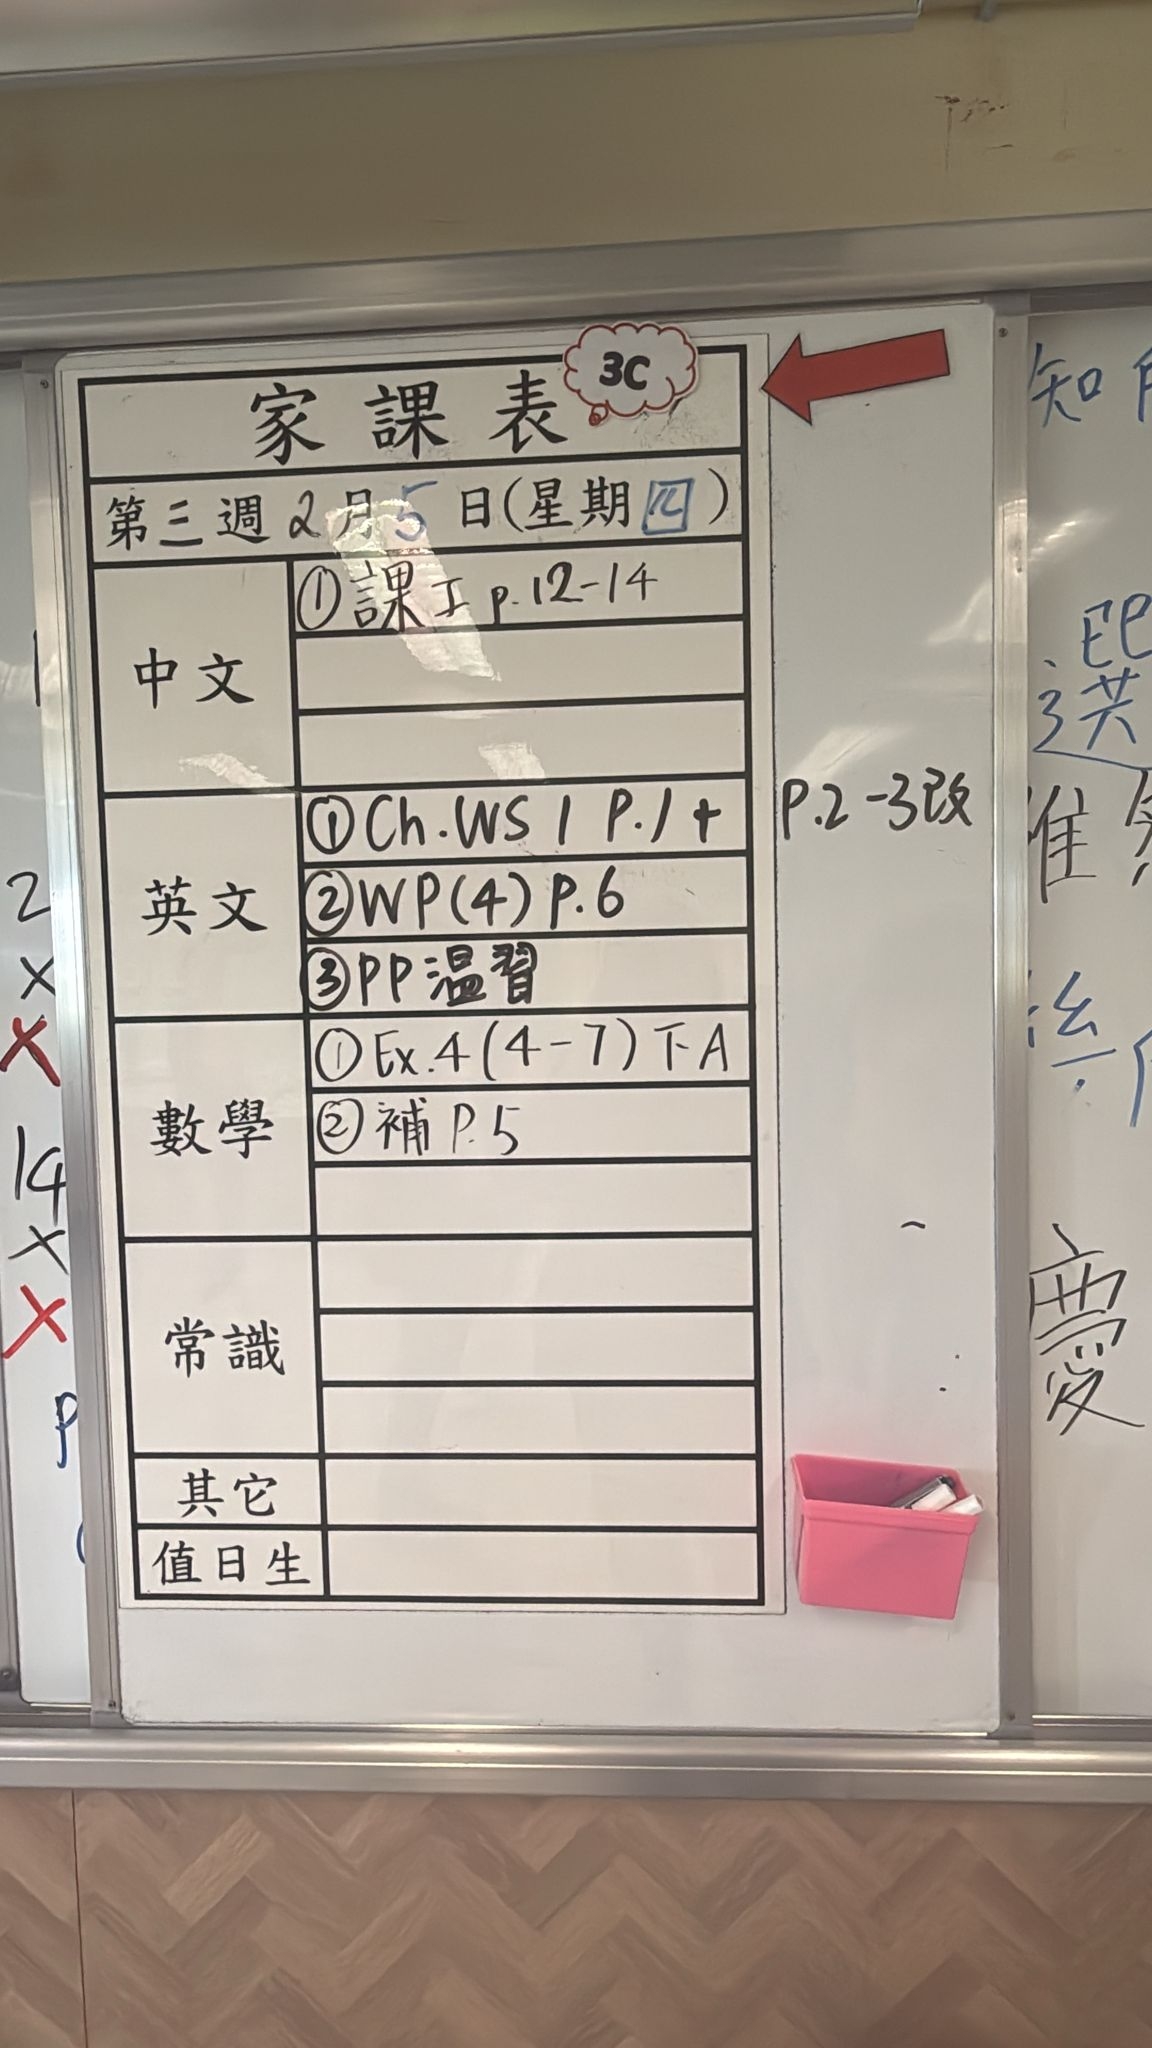 家課表
3C
第三週2月5日(星期四)
中文
①課工p.12-14
英文
①Ch.WS 1 P.1+ P.2-3改
②WP(4) P.6
③PP温習
數學
①Ex.4(4-7)下A
②補P.5
常識
其它
值日生
2
x
x
14
x
x
p
知
選
慶